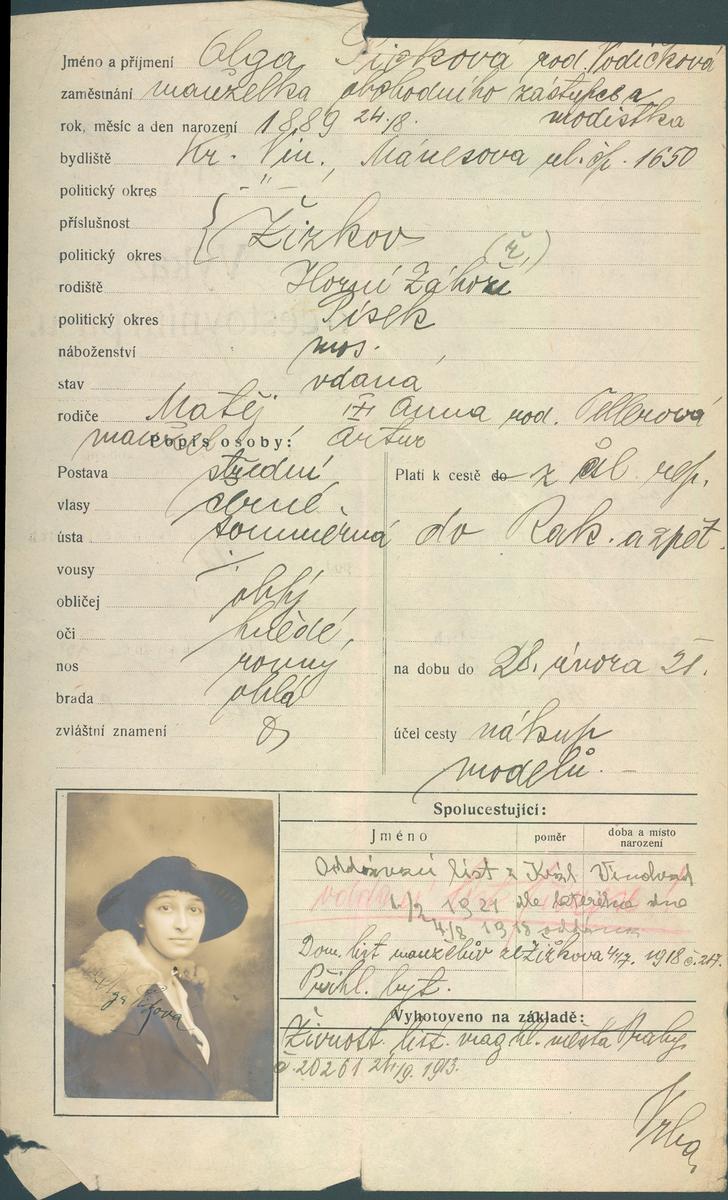 Jméno a příjmení Olga Picková rod. Vodičková
zaměstnání manželka obchodního zástupce a
modistka
rok, měsíc a den narození 1889 24/8.
bydliště Kr. Vin., Mánesova ul. čp. 1650
politický okres -"-
příslušnost Žižkov
politický okres
rodiště Horní Záhoří
politický okres Písek
náboženství mos.
stav vdaná
rodiče Matěj Anna rod.
manžel Artur
Popis osoby:
Postava střední
vlasy černé
ústa souměrná
vousy
obličej oblý
oči hnědé,
nos rovný
brada oblá
zvláštní znamení
Platí k cestě do z čsl. rep.
do Rak. a zpět.
na dobu do 28. února 21.
účel cesty nákup
modelů.
Spolucestující:
Jméno poměr doba a místo narození
Oddávací list z Král. Vinohrad
4/2 1921 dle kterého dne
4/8 1918
Dom. list manželův ze Žižkova 4/7. 1918 č. 217.
Přihl. byt.
Vyhotoveno na základě:
Živnost. list mag. hl. města Prahy
č. 20261 24/9. 1913.
Olga Picková
Vrba